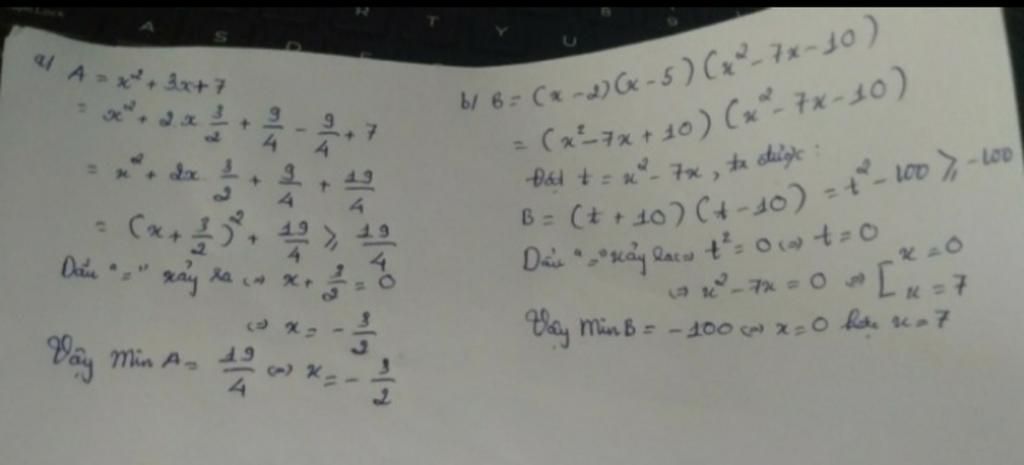 a/ A = x² + 3x + 7
= x² + 2.x 3/2 + 9/4 - 9/4 + 7
= x² + 2x 3/2 + 9/4 + 19/4
= (x + 3/2)² + 19/4 ⩾ 19/4
Dấu "=" xảy ra ⇔ x + 3/2 = 0
⇔ x = - 3/2
Vậy Min A = 19/4 ⇔ x = - 3/2
b/ B = (x - 2)(x - 5)(x² - 7x - 10)
= (x² - 7x + 10)(x² - 7x - 10)
Đặt t = x² - 7x, ta được:
B = (t + 10)(t - 10) = t² - 100 ⩾ -100
Dấu "=" xảy ra ⇔ t² = 0 ⇔ t = 0
⇔ x² - 7x = 0 ⇔ [ x = 0
x = 7
Vậy Min B = -100 ⇔ x = 0 hoặc x = 7